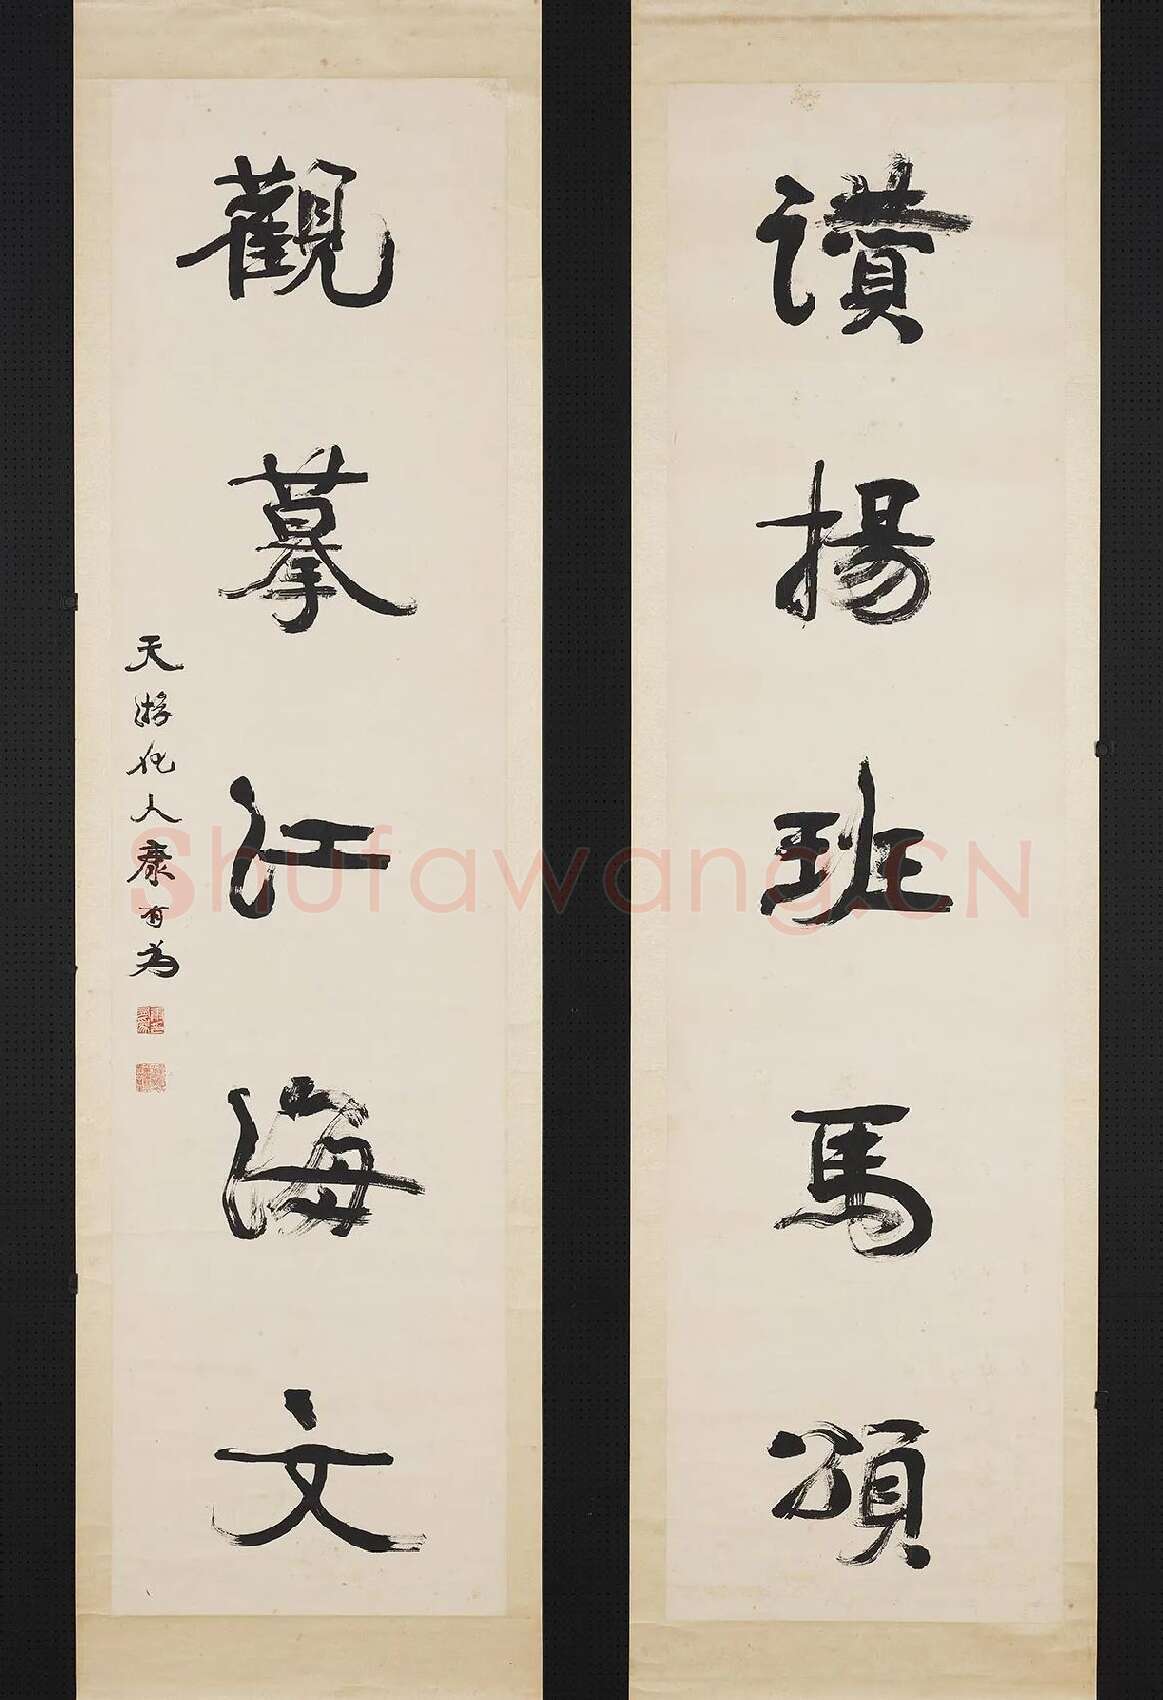 讚揚班馬頌
觀摹江海文
天游化人康有為
Shufawang.CN